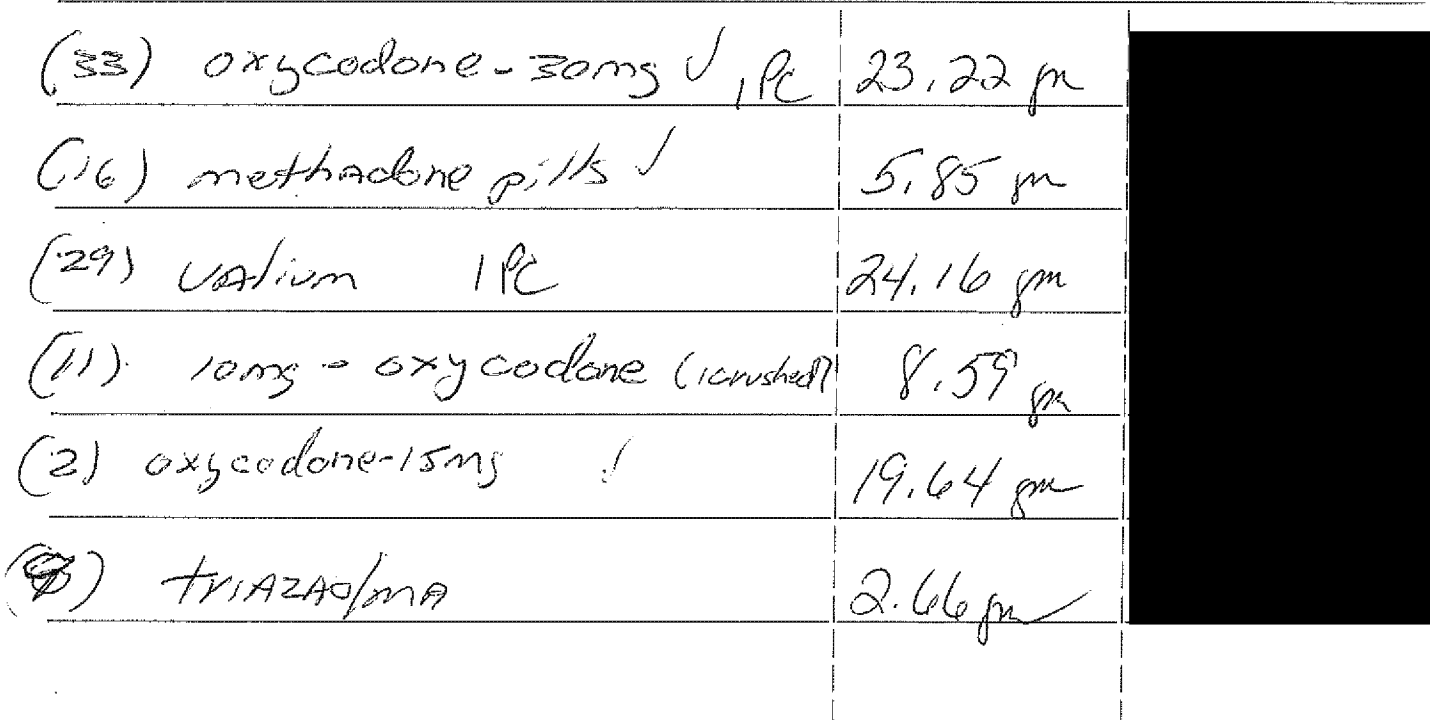 (33) oxycodone-30mg ✓ , PC 23.22 gm
(16) methadone pills ✓ 5.85 gm
(29) VAlium 1 PC 24.16 gm
(11) 10mg - oxycodone (1crushed) 8.59 gm
(2) oxycodone-15mg ✓ 19.64 gm
triAZAolmA 2.66 gm